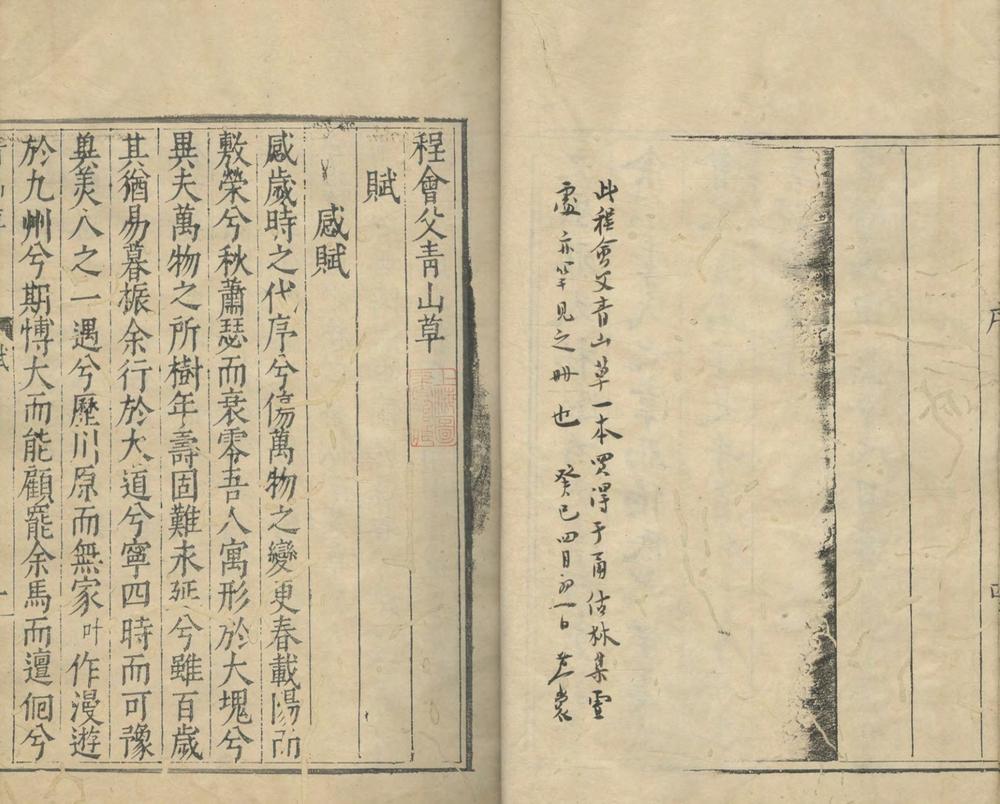 序
四
此程會父青山草一本買得于甬估林集虛
處亦罕見之冊也 癸巳四月初一日
程會父青山草
賦
感賦
感歲時之代序兮傷萬物之變更春載陽而
敷榮兮秋蕭瑟而衰零吾人寓形於大塊兮
異夫萬物之所樹年壽固難未延兮雖百歲
其猶易暮振余行於大道兮寧四時而可豫
與美人之一遇兮歷川原而無家叶作漫遊
於九州兮期愽大而能顧罷余馬而邅佪兮
賦
一